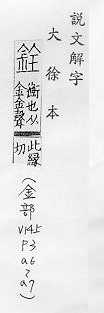 說文解字
大徐本
銓
衡也从
金全聲
此緣
切
（金部
V14.5
P3
a6
a7）